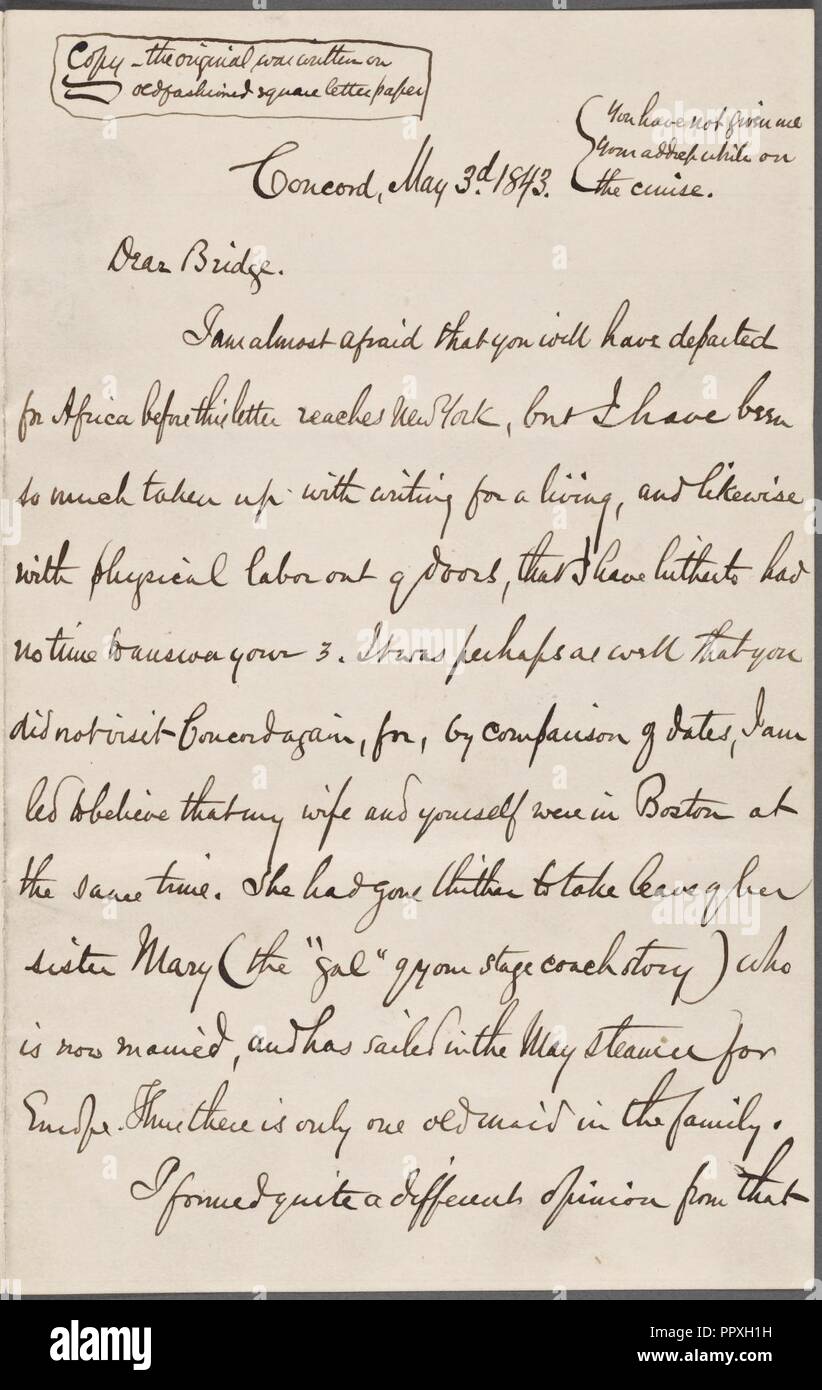 Copy - the original was written on
old fashioned square letter paper
You have not given me
your address while on
the cruise.
Concord, May 3d. 1843.
Dear Bridge.
I am almost afraid that you will have departed
for Africa before this letter reaches New York, but I have been
so much taken up with writing for a living, and likewise
with physical labor out of doors, that I have hitherto had
no time to answer your 3. It was perhaps as well that you
did not visit Concord again, for, by comparison of dates, I am
led to believe that my wife and yourself were in Boston at
the same time. She had gone thither to take leave of her
sister Mary (the "gal" of your stage coach story) who
is now married, and has sailed in the May steamer for
Europe. Thus there is only one old maid in the family.
I formed quite a different opinion from that
alamy
Image ID: PPXH1H
www.alamy.com